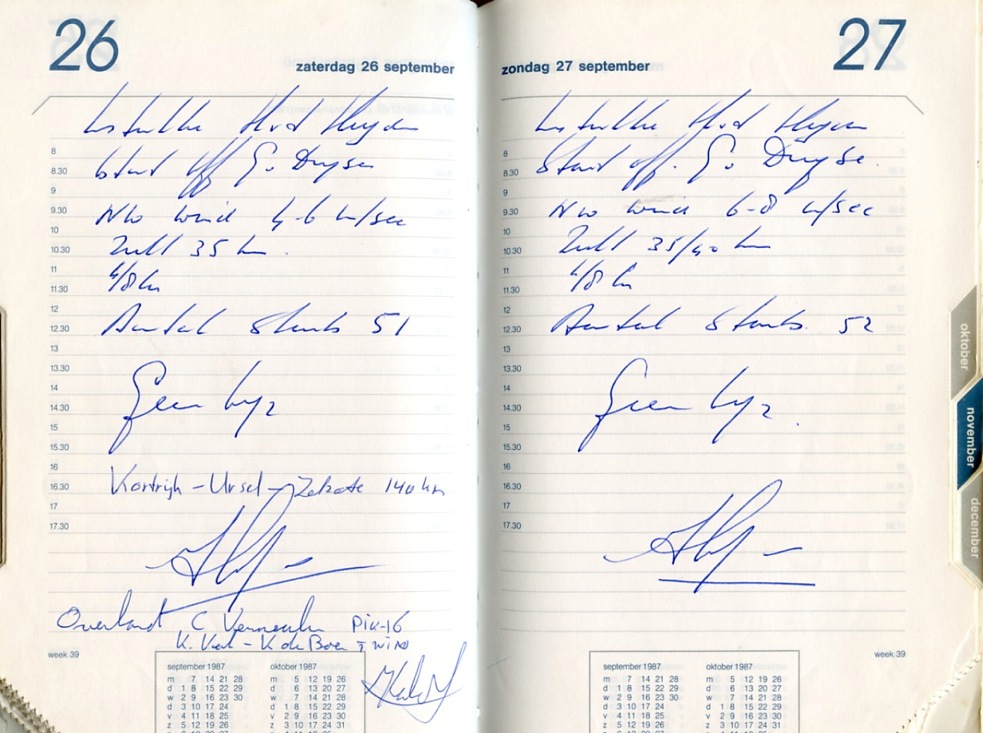 26
zaterdag 26 september
8
8.30
start off G. Duyse
9
9.30
NW wind 4-6 m/sec
10
10.30
Zicht 35 km.
11
11.30
4/8 Cu
12
12.30
Aantal starts 51
13
13.30
14
14.30
Geen bijz
15
15.30
16
16.30
Kortrijk - Ursel - Zelzate 140 km
17
17.30
Overlandt C Vermeulen Pik-16
K. - K de Boer T WIN
week 39
september 1987 oktober 1987
m 7 14 21 28 m 5 12 19 26
d 1 8 15 22 29 d 6 13 20 27
w 2 9 16 23 30 w 7 14 21 28
d 3 10 17 24 d 1 8 15 22 29
v 4 11 18 25 v 2 9 16 23 30
z 5 12 19 26 z 3 10 17 24 31
27
zondag 27 september
8
8.30
Start off. G. Duyse.
9
9.30
NW wind 6-8 m/sec
10
10.30
Zicht 35/40 km
11
11.30
4/8 Cu
12
12.30
Aantal starts. 52
13
13.30
14
14.30
Geen bijz.
15
15.30
16
16.30
17
17.30
week 39
september 1987 oktober 1987
m 7 14 21 28 m 5 12 19 26
d 1 8 15 22 29 d 6 13 20 27
w 2 9 16 23 30 w 7 14 21 28
d 3 10 17 24 d 1 8 15 22 29
v 4 11 18 25 v 2 9 16 23 30
z 5 12 19 26 z 3 10 17 24 31
oktober
november
december